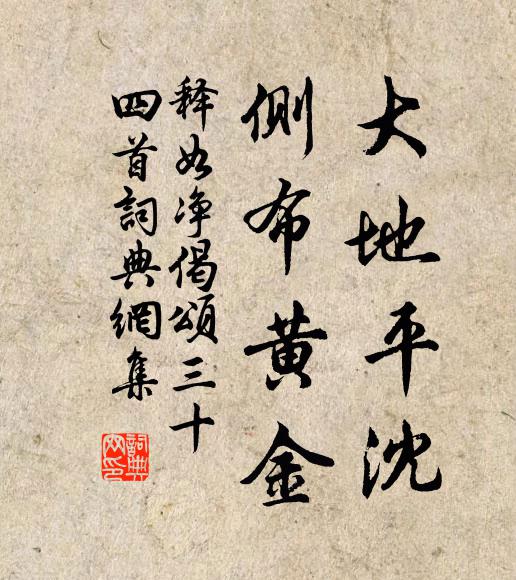 大地平沈
側布黄金
释如净偈頌三十
四首詞典網集
詞典網印